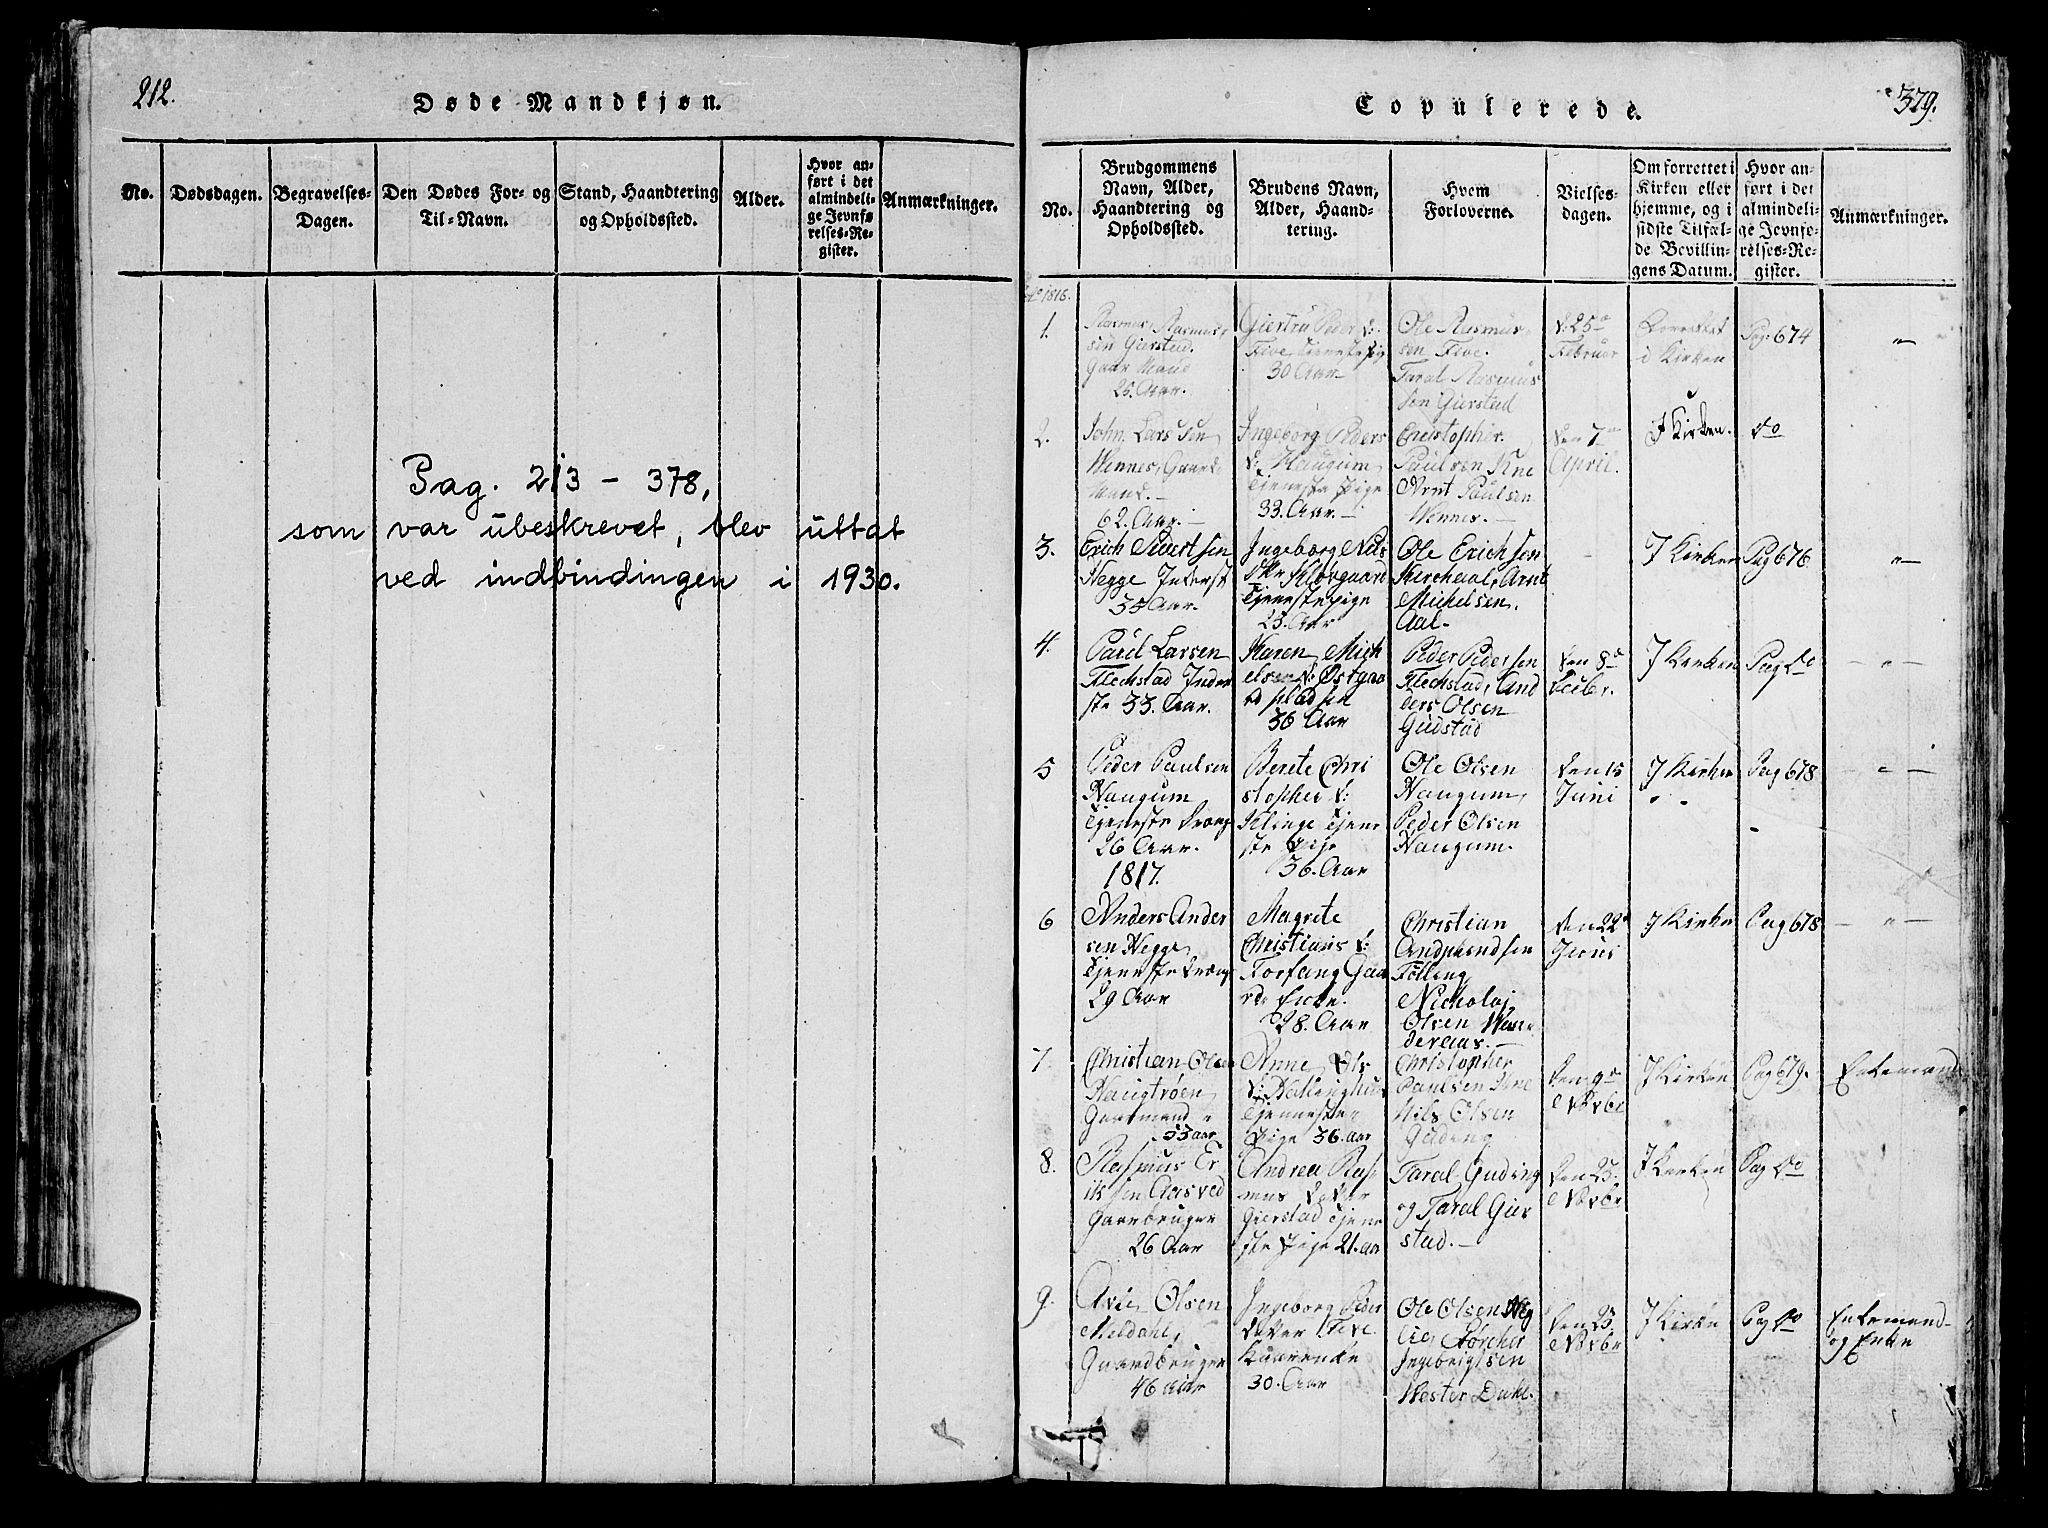 212.
Døde Mandkjøn.
No.
Dødsdagen.
Begravelses-
Dagen.
Den Dødes For- og
Til-Navn.
Stand, Haandtering
og Opholdssted.
Alder.
Hvor an-
ført i det
almindeli-
ge Jevnfø
relses-Re-
gister.
Anmærkninger.
Pag. 213 - 378,
som var ubeskrevet, blev uttat
ved indbindingen i 1930.
Copulerede.
379.
No.
Brudgommens
Navn, Alder,
Haandtering og
Opholdssted.
Brudens Navn,
Alder, Haand-
tering.
Hvem
Forloverne.
Vielses-
dagen.
Om forrettet i
Kirken eller
hjemme, og i
sidste Tilfæl-
de Bevillin-
gens Datum.
Hvor an-
ført i det
almindeli-
ge Jevnfø-
relses-Re-
gister.
Anmærkninger.
1816.
1.
Rasmus Rasmus
sen Gierstad.
Gaar Mand
25. Aar.
Giertru Peder D:
Five, Tieneste Pig
30 Aar
Ole Rasmus
sen Five.
Taral Rasmus
sen Gierstad
D: 25de
Februar
i Kirken
Pag. 674
"
2.
John Lars sen
Wennes, Gaard
Mand.
62. Aar.
Ingeborg Peders
D: Haugum
Tjeneste Pige
33. Aar.
Christopher
Paulsen Kne
Arnt Paulsen
Wennes.
Den 7de
April.
I Kirken.
do
3.
Erich Sivertsen
Hegge Inderst
35 Aar.
Ingeborg Nils
Tjenestepige
25. Aar
Ole Erichsen
Arnt
Michelsen,
Aal.
I Kirken
Pag 676
"
4.
Paul Larsen
Flechstad Inder
ste 33. Aar.
Karen Mich
elsen D: Østgaa
rd pladsen
36 Aar
Peder Pedersen
Flechstad, And
ders Olsen
Gudstad
Den 8de
I Kirken
Pag do
"
5
Peder Paulsen
Haugum
Tjeneste Dreng
26 Aar.
Berete Chri
stopher D:
Tjene
ste Pige
36. Aar
Ole Olsen
Haugum,
Peder Olsen
Haugum.
Den 15
Juni
I Kirken
Pag 678
"
1817.
6
Anders Ander
sen Hegge
Tjeneste Dreng
29 Aar
Magrete
Christians D:
Forfang Gaa
rd: Enke.
28. Aar
Christian
Følling
Nickolaj
Olsen Wes
deraas.
Den 22de
Juni
I Kirken
Pag 678
"
7.
Christian Olsen
Haugtrøen
Gaardmand
55 aar
Anne Ols
Tjeneste
Pige 36. aar
Christopher
Paulsen Kne
Nils Olsen
Guding
Den 9de
Novbr
I Kirken
Pag 679.
Enkemand
8.
Rasmus Er
iksen Aasved
Gaardbruger
26 Aar
Andrea Ras
mus Datter
Gierstad Tjene
ste Pige 21. aar
Taral Guding
og Taral Gier
stad.
Den 23.
Novbr
I Kirken
Pag do
9.
Olsen
Meldahl,
Gaardbruger
46 Aar
Ingeborg Peder
Datter Five
30. Aar
Ole Olsen Heg
Ingebrigtsen
Wester Dahl.
Den 23
Novbr
I Kirke
Pag do
Enkemand
og Enke